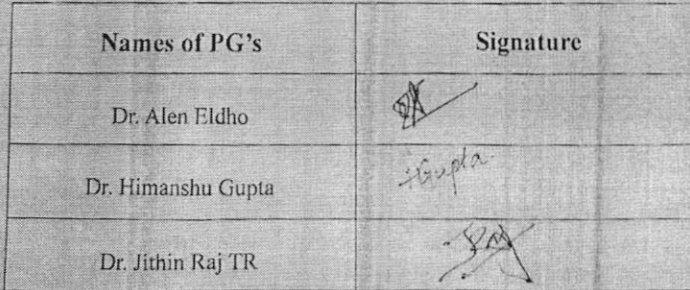 Names of PG's Signature
Dr. Alen Eldho
Dr. Himanshu Gupta Gupta
Dr. Jithin Raj TR